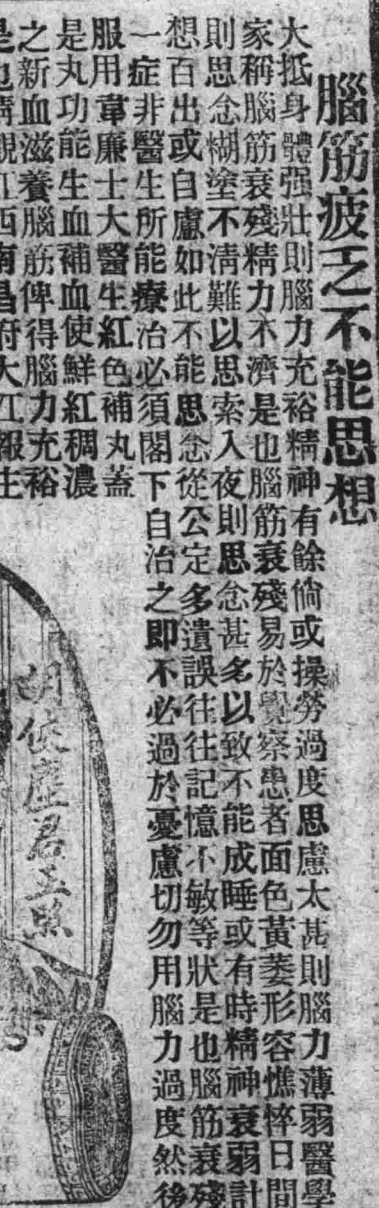 腦筋疲乏不能思想
大抵身體强壯則腦力充裕精神有餘倘或操勞過度思慮太甚則腦力薄弱醫學
家稱腦筋衰殘精力不濟是也腦筋衰殘易於覺察患者面色黃萎形容憔悴日間
則思念糊塗不清難以思索入夜則思念甚多以致不能成睡或有時精神衰弱計
想百出或自慮如此不能思念從公定多遺誤往往記憶不敏等狀是也腦筋衰殘
一症非醫生所能療治必須閣下自治之即不必過於憂慮切勿用腦力過度然後
服用韋廉士大醫生紅色補丸蓋
是丸功能生血補血使鮮紅稠濃
之新血滋養腦筋俾得腦力充裕
是也請觀江西南昌府大江報主
胡俠塵君玉照